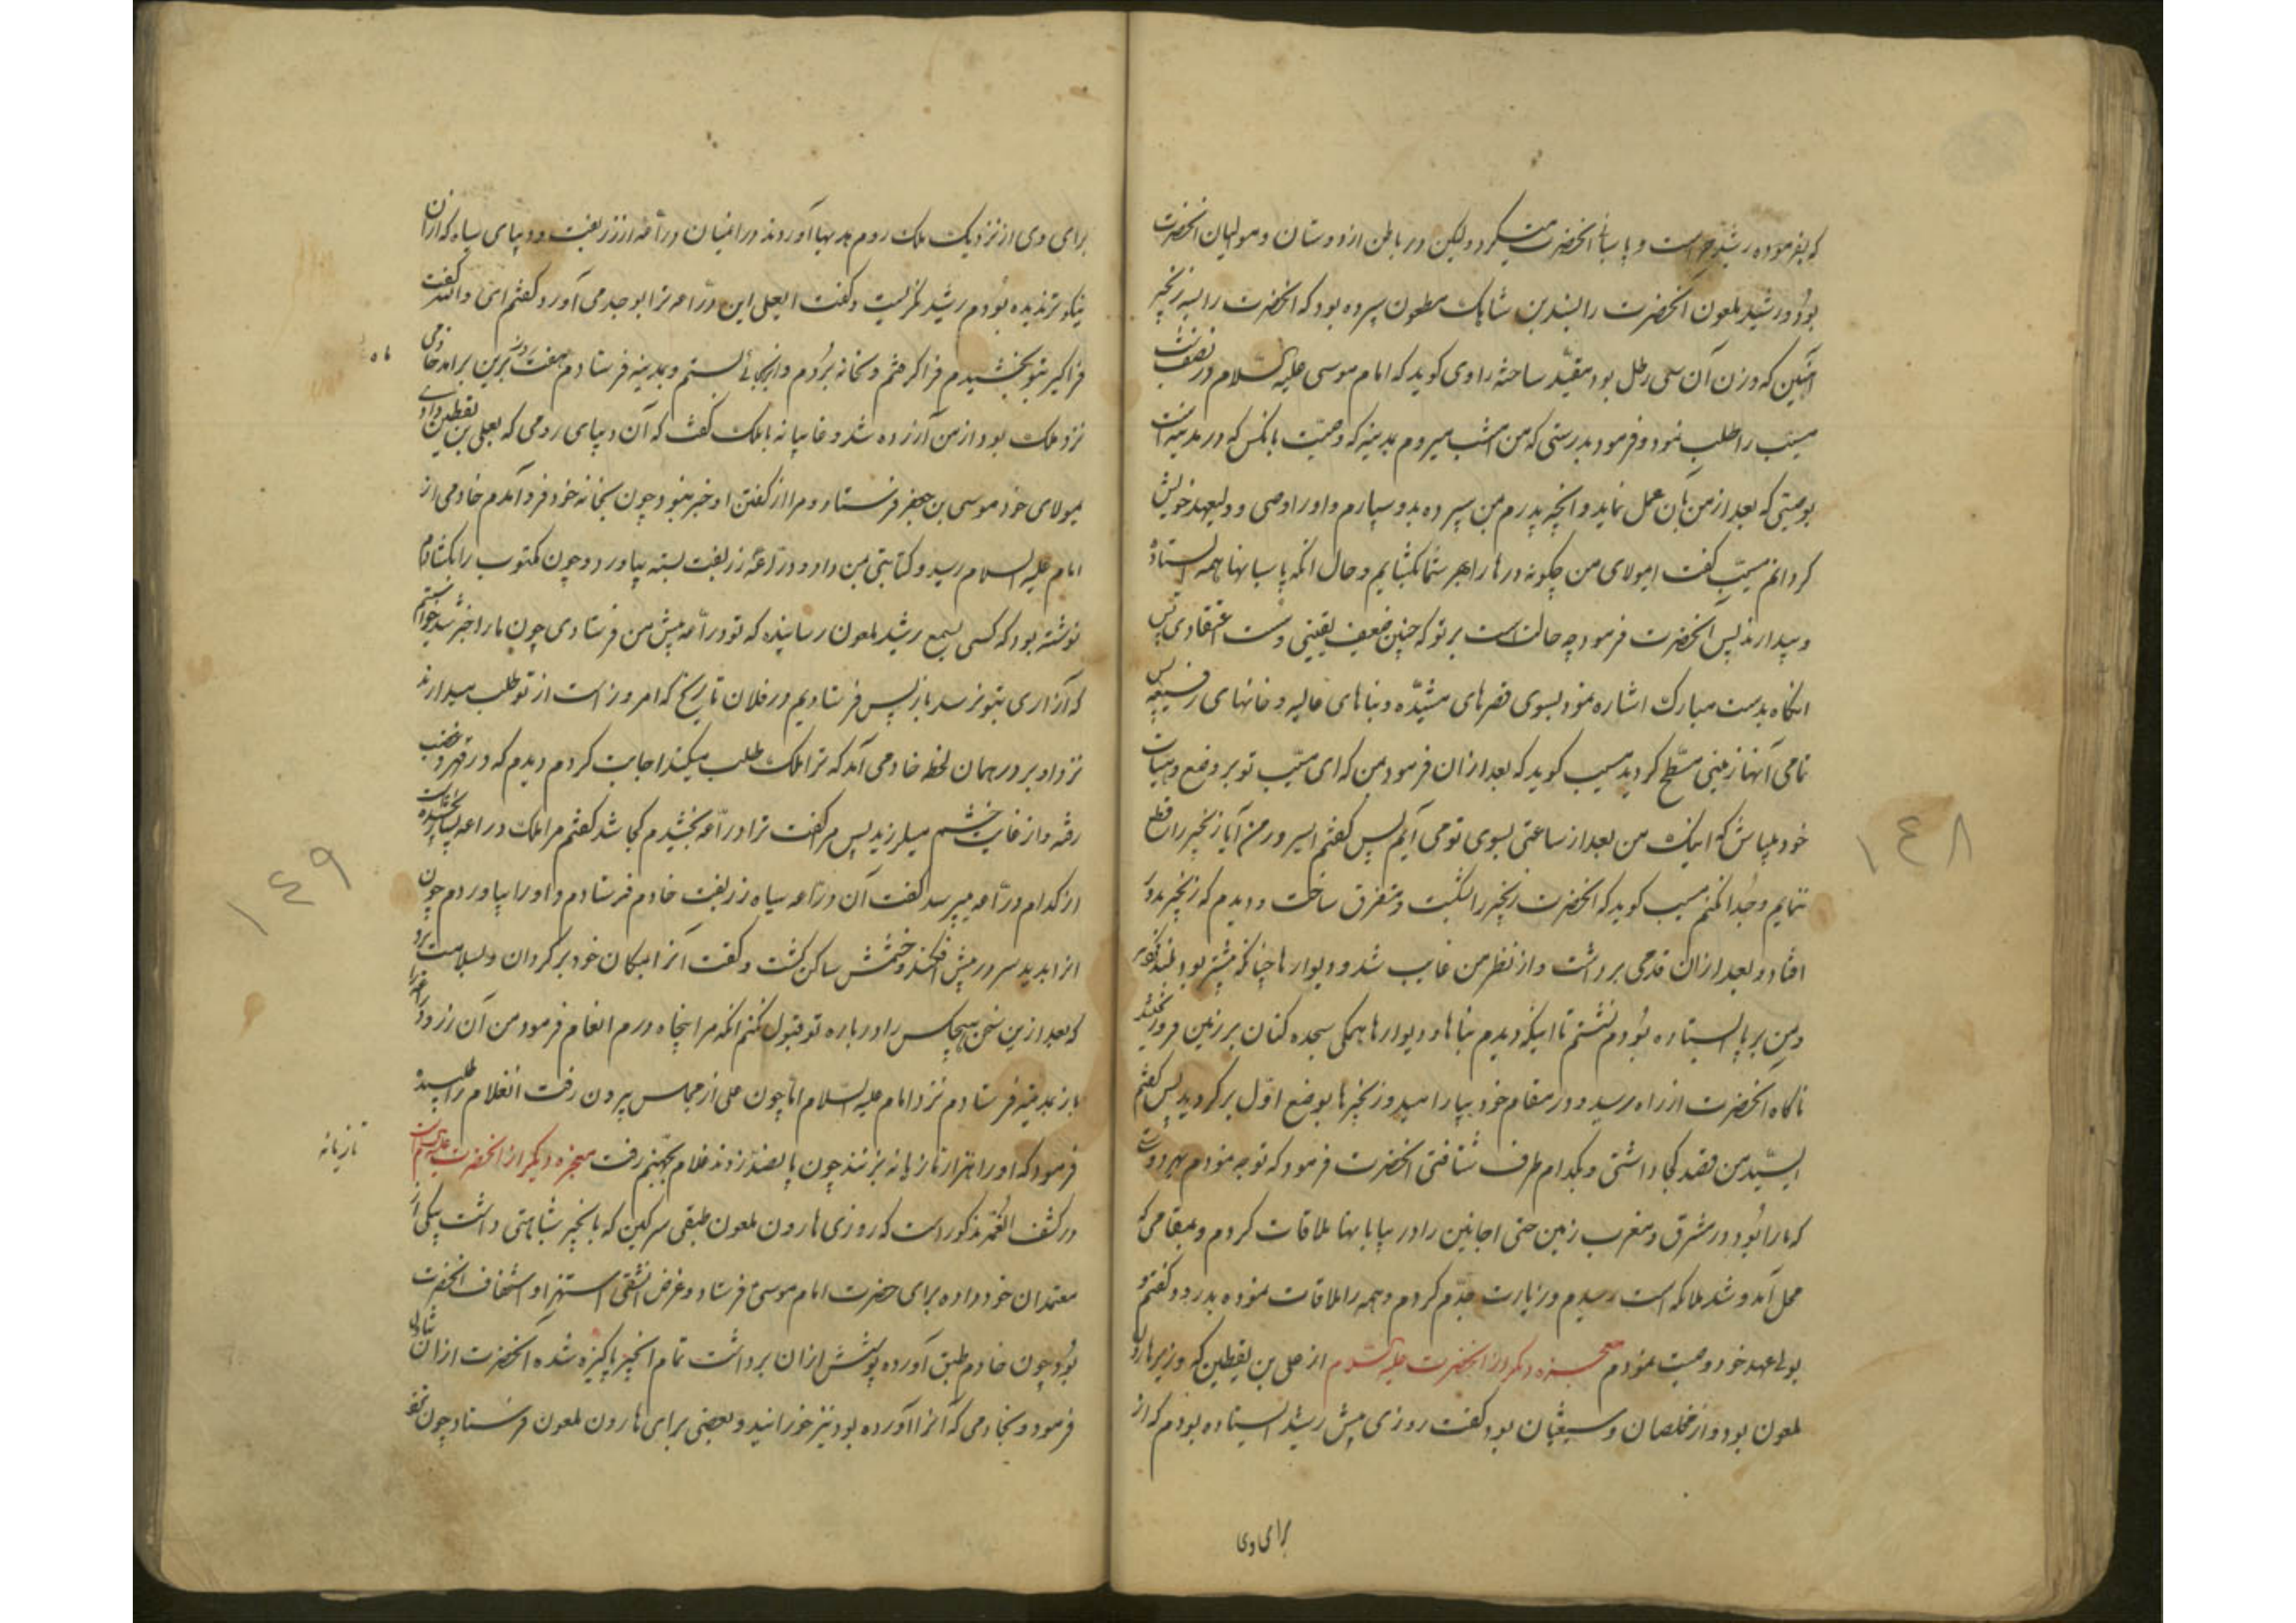 که بفرموده رشید حراست و پاسبانی آنحضرت میکرد ولیکن در باطن از دوستان و موالیان آنحضرت
بود و رشید ملعون آنحضرت را بسندی بن شاهک ملعون سپرده بود که آنحضرت را بسه زنجیر
آهنین که وزن آن سی رطل بود مقید ساخته راوی کوید که امام موسی علیه السلام در نصف شب
مسیب را طلب نمود و فرمود بدرستی که من امشب میروم بمدینه که وصیت بانکس که در مدینه است
بوصیتی که بعد از من بآن عمل نماید و آنچه پدرم بمن سپرده بدو سپارم و او را وصی و ولیعهد خویش
کردانم مسیب کفت ایمولای من چکونه درها را بجهر شما بکشایم و حال آنکه پاسبانها همه ایستاده
و بیدارند پس آنحضرت فرمود چه حالتست بر تو که چنین ضعیف یقینی و سست اعتقادی پس
آنکاه بدست مبارک اشاره نمود بسوی قصرهای مشیده و بناهای عالیه و خانهای رفیعه پس
تمامی آنها زمینی مسطح کردید مسیب کوید که بعد از آن فرمود بمن که ای مسیب تو بر وضع و هیات
خود بباش که اینک من بعد از ساعتی بسوی تو می آیم پس کفتم ایسرور من آیا زنجیر را قطع
ننمایم و جدا نکنم مسیب کوید که آنحضرت زنجیر را بشکست و متفرق ساخت و دیدم که زنجیر بدور
افتاد و بعد از آن قدمی برداشت و از نظر من غایب شد و دیوارها چنانکه پیشتر بود بلند
و من بر پا ایستاده بودم نشستم تا اینکه دیدم بناها و دیوارها همکی سجده کنان بر زمین فرو
ناکاه آنحضرت از راه برسید و در مقام خود بیارامید و زنجیرها بوضع اول برکردید پس کفتم
ایسید من قصد کجا داشتی و بکدام طرف شتافتی آنحضرت فرمود که توجه نمودم بهر دوست
که ما را بود در مشرق و مغرب زمین حتی اجانین را در بیابانها ملاقات کردم و بمقامی که
محل آمد و شد ملائکه است رسیدم و زیارت جدم کردم و همه را ملاقات نموده بدرود کفتم و
بولیعهد خود وصیت نمودم معجزه دیکر از آنحضرت علیه السلام از علی بن یقطین که وزیر هارون
ملعون بود و از مخلصان و شیعیان بود کفت روزی پیش رشید ایستاده بودم که از
برای وی
۱۴۸
برای وی از نزدیک ملک روم هدیها آوردند در آنمیان دراعه از زربفت و دیبای سیاه که از آن
نیکوتر ندیده بودم رشید نکریست و کفت ایعلی این دراعه ترا بوجد می آورد کفتم ای والله کفت
فراکیر بتو بخشیدم فراکرفتم و بخانه بردم و در بقچه بستم و بمدینه فرستادم هفت روز برین برآمد خادمی
ماه
نزد ملک بود از من آزرده شد و غایبانه با ملک کفت که آن دیبای رومی که بعلی بن یقطین دادی
بمولای خود موسی بن جعفر فرستاد و مرا از کفتن او خبر نبود چون بخانه خود فرو آمدم خادمی از
امام علیه السلام رسید و کتابتی بمن داد و دراعه زربفت بسته بیاورد و چون مکتوب را بکشادم
نوشته بود که کسی بسمع رشید ملعون رسانیده که تو دراعه پیش من فرستادی چون ما را خبر شد خواستم
که آزاری بتو نرسد باز پس فرستادیم در فلان تاریخ که امروز است از تو طلب میدارند
نزد او بر در همان لحظه خادمی آمد که ترا ملک طلب میکند اجابت کردم دیدم که در قهر و غضب
رفته و از غایت خشم میلرزید پس مرا کفت ترا دراعه بخشیدم کجا شد کفتم مرا ملک دراعه بسیار بخشیده
از کدام دراعه میپرسد کفت آن دراعه سیاه زربفت خادم فرستادم و او را بیاوردم چون
آنرا بدید سر در پیش افکند و خشمش ساکن کشت و کفت آنرا بمکان خود برکردان و بسلامت برو
که بعد ازین سخن هیچکس را درباره تو قبول نکنم آنکه مرا پنجاه درم انعام فرمود من آن زر و دراعه را
باز بمدینه فرستادم نزد امام علیه السلام اما چون علی از مجلس بیرون رفت آنغلام را طلبیده
فرمود که او را هزار تازیانه بزنند چون پانصد زدند غلام بجهنم رفت معجزه دیکر از آنحضرت علیه السلام
تازیانه
در کشف الغمه مذکور است که روزی هارون ملعون طبقی سرکین که بانجیر شباهتی داشت بیکی از
معتمدان خود داده برای حضرت امام موسی فرستاد و غرض آنشقی استهزا و استخفاف آنحضرت
بود چون خادم طبق آورده پوشش از آن برداشت تمام انجیر پاکیزه شده آنحضرت از آن تناول
فرمود و بخادمی که آنرا آورده بود نیز خورانید و بعضی برای هارون ملعون فرستاد چون
۱۴۹